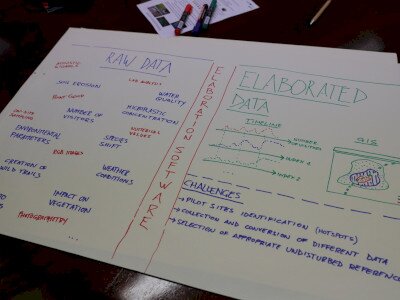 RAW DATA
SOIL EROSION
WATER
QUALITY
NUMBER OF
VISITORS
MICROPLASTIC
CONCENTRATION
ENVIRONMENTAL
PARAMETERS
SPECIES
SHIFT
NUMERICAL
VALUES
CREATION OF
WILD TRAILS
WEATHER
CONDITIONS
IMPACT ON
VEGETATION
PHOTOGRAMMETRY
ELABORATION SOFTWARE
ELABORATED
DATA
TIMELINE
NUMBER
OF VISITORS
INDEX 1
INDEX 2
GIS
CHALLENGES
→ PILOT SITES IDENTIFICATION (HOTSPOTS)
→ COLLECTION AND CONVERSION OF DIFFERENT DATA
→ SELECTION OF APPROPRIATE UNDISTURBED REFERENCE